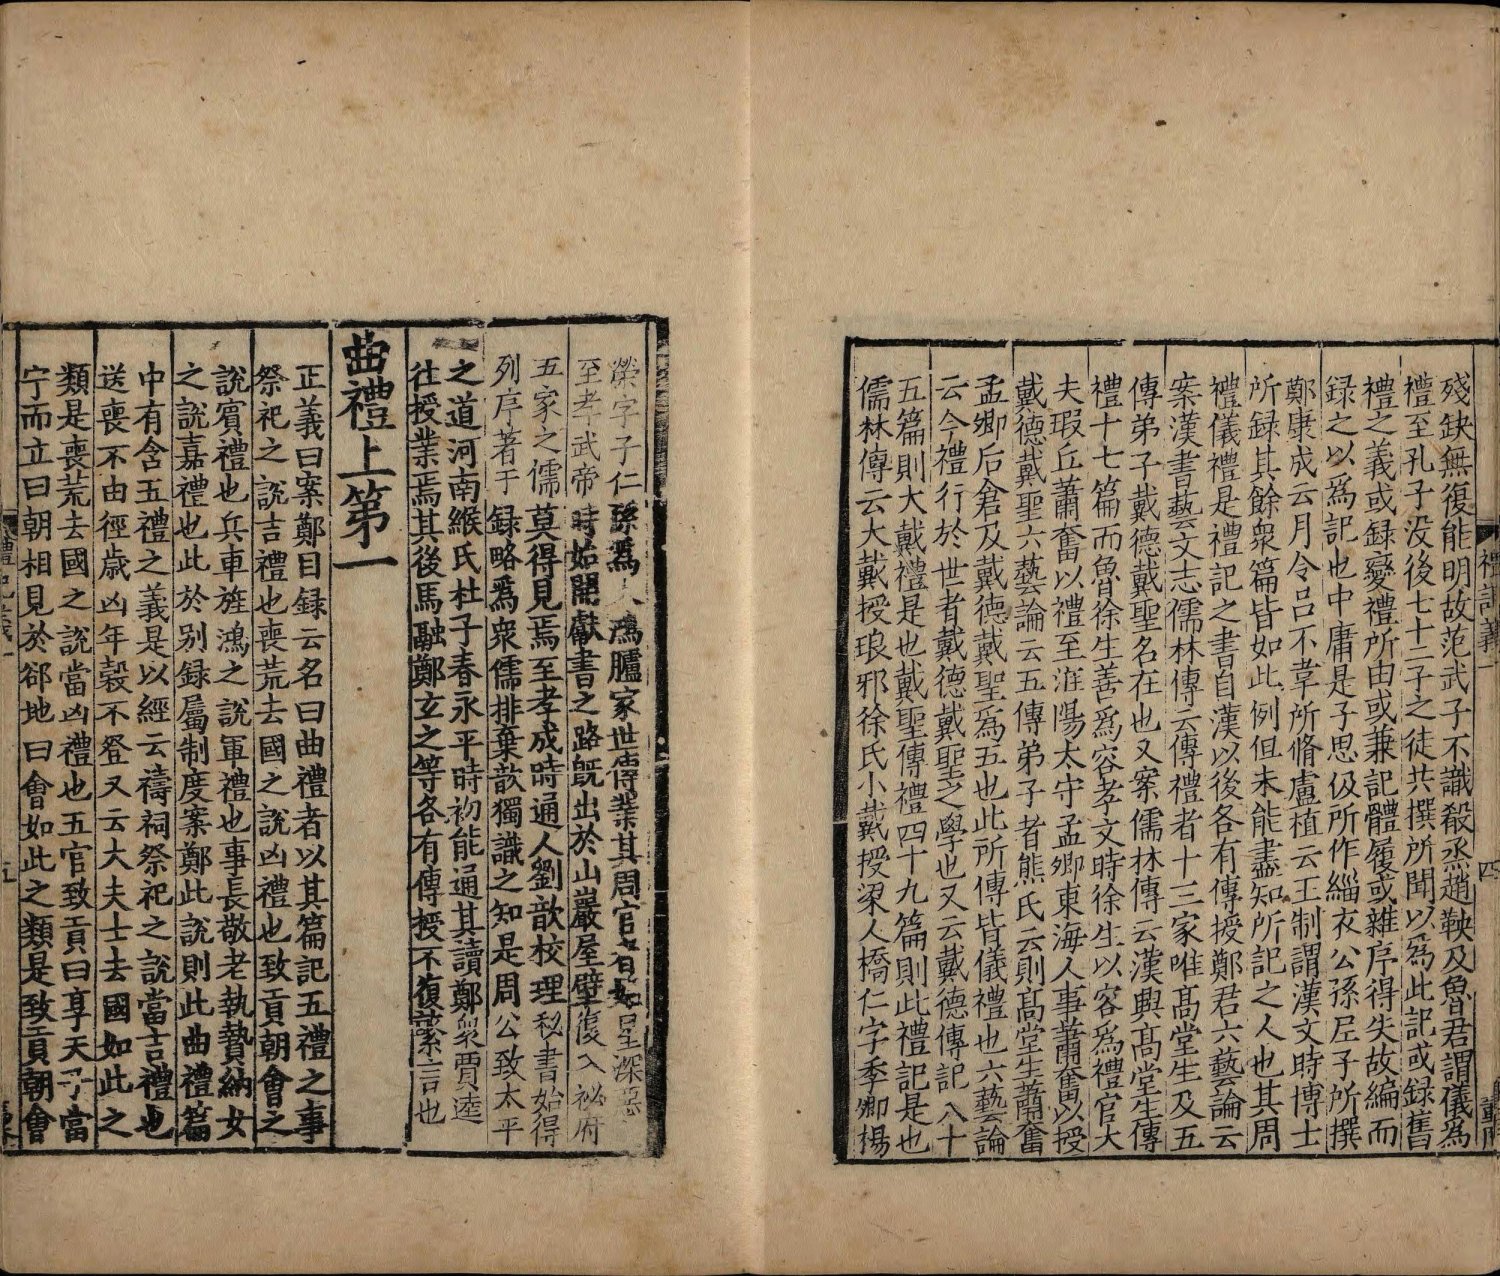 殘缺無復能明故范武子不識殽烝趙鞅及魯君謂儀爲
禮至孔子没後七十二子之徒共撰所聞以爲此記或錄舊
禮之義或録變禮所由或兼記體履或雜序得失故編而
録之以爲記也中庸是子思伋所作緇衣公孫尼子所撰
鄭康成云月令吕不韋所脩盧植云王制謂漢文時博士
所録其餘衆篇皆如此例但未能盡知所記之人也其周
禮儀禮是禮記之書自漢以後各有傳授鄭君六藝論云
案漢書藝文志儒林傳云傳禮者十三家唯髙堂生及五
傳弟子戴德戴聖名在也又案儒林傳云漢興髙堂生傳
禮十七篇而魯徐生善爲容孝文時徐生以容爲禮官大
夫瑕丘蕭奮以禮至淮陽太守孟卿東海人事蕭奮以授
戴德戴聖六藝論云五傳弟子者熊氏云則髙堂生蕭奮
孟卿后倉及戴德戴聖爲五也此所傳皆儀禮也六藝論
云今禮行於世者戴德戴聖之學也又云戴德傳記八十
五篇則大戴禮是也戴聖傳禮四十九篇則此禮記是也
儒林傳云大戴授琅邪徐氏小戴授梁人橋仁字季卿楊
禮記義一
四
榮字子仁孫爲大鴻臚家世傳業其周官者始皇深惡
至孝武帝時始開獻書之路旣出於山巖屋壁復入祕府
五家之儒莫得見焉至孝成時通人劉歆校理秘書始得
列序著于録略爲衆儒排棄歆獨識之知是周公致太平
之道河南緱氏杜子春永平時初能通其讀鄭衆賈逵
往授業焉其後馬融鄭玄之等各有傳授不復繁言也
曲禮上第一
正義曰案鄭目録云名曰曲禮者以其篇記五禮之事
祭祀之說吉禮也喪荒去國之說凶禮也致貢朝會之
說賓禮也兵車旌鴻之說軍禮也事長敬老執贄納女
之說嘉禮也此於别録屬制度案鄭此說則此曲禮篇
中有含五禮之義是以經云禱祠祭祀之說當吉禮也
送喪不由徑歲凶年穀不登又云大夫士去國如此之
類是喪荒去國之說當凶禮也五官致貢曰享天子當
宁而立曰朝相見於郤地曰會如此之類是致貢朝會
禮記義一
五